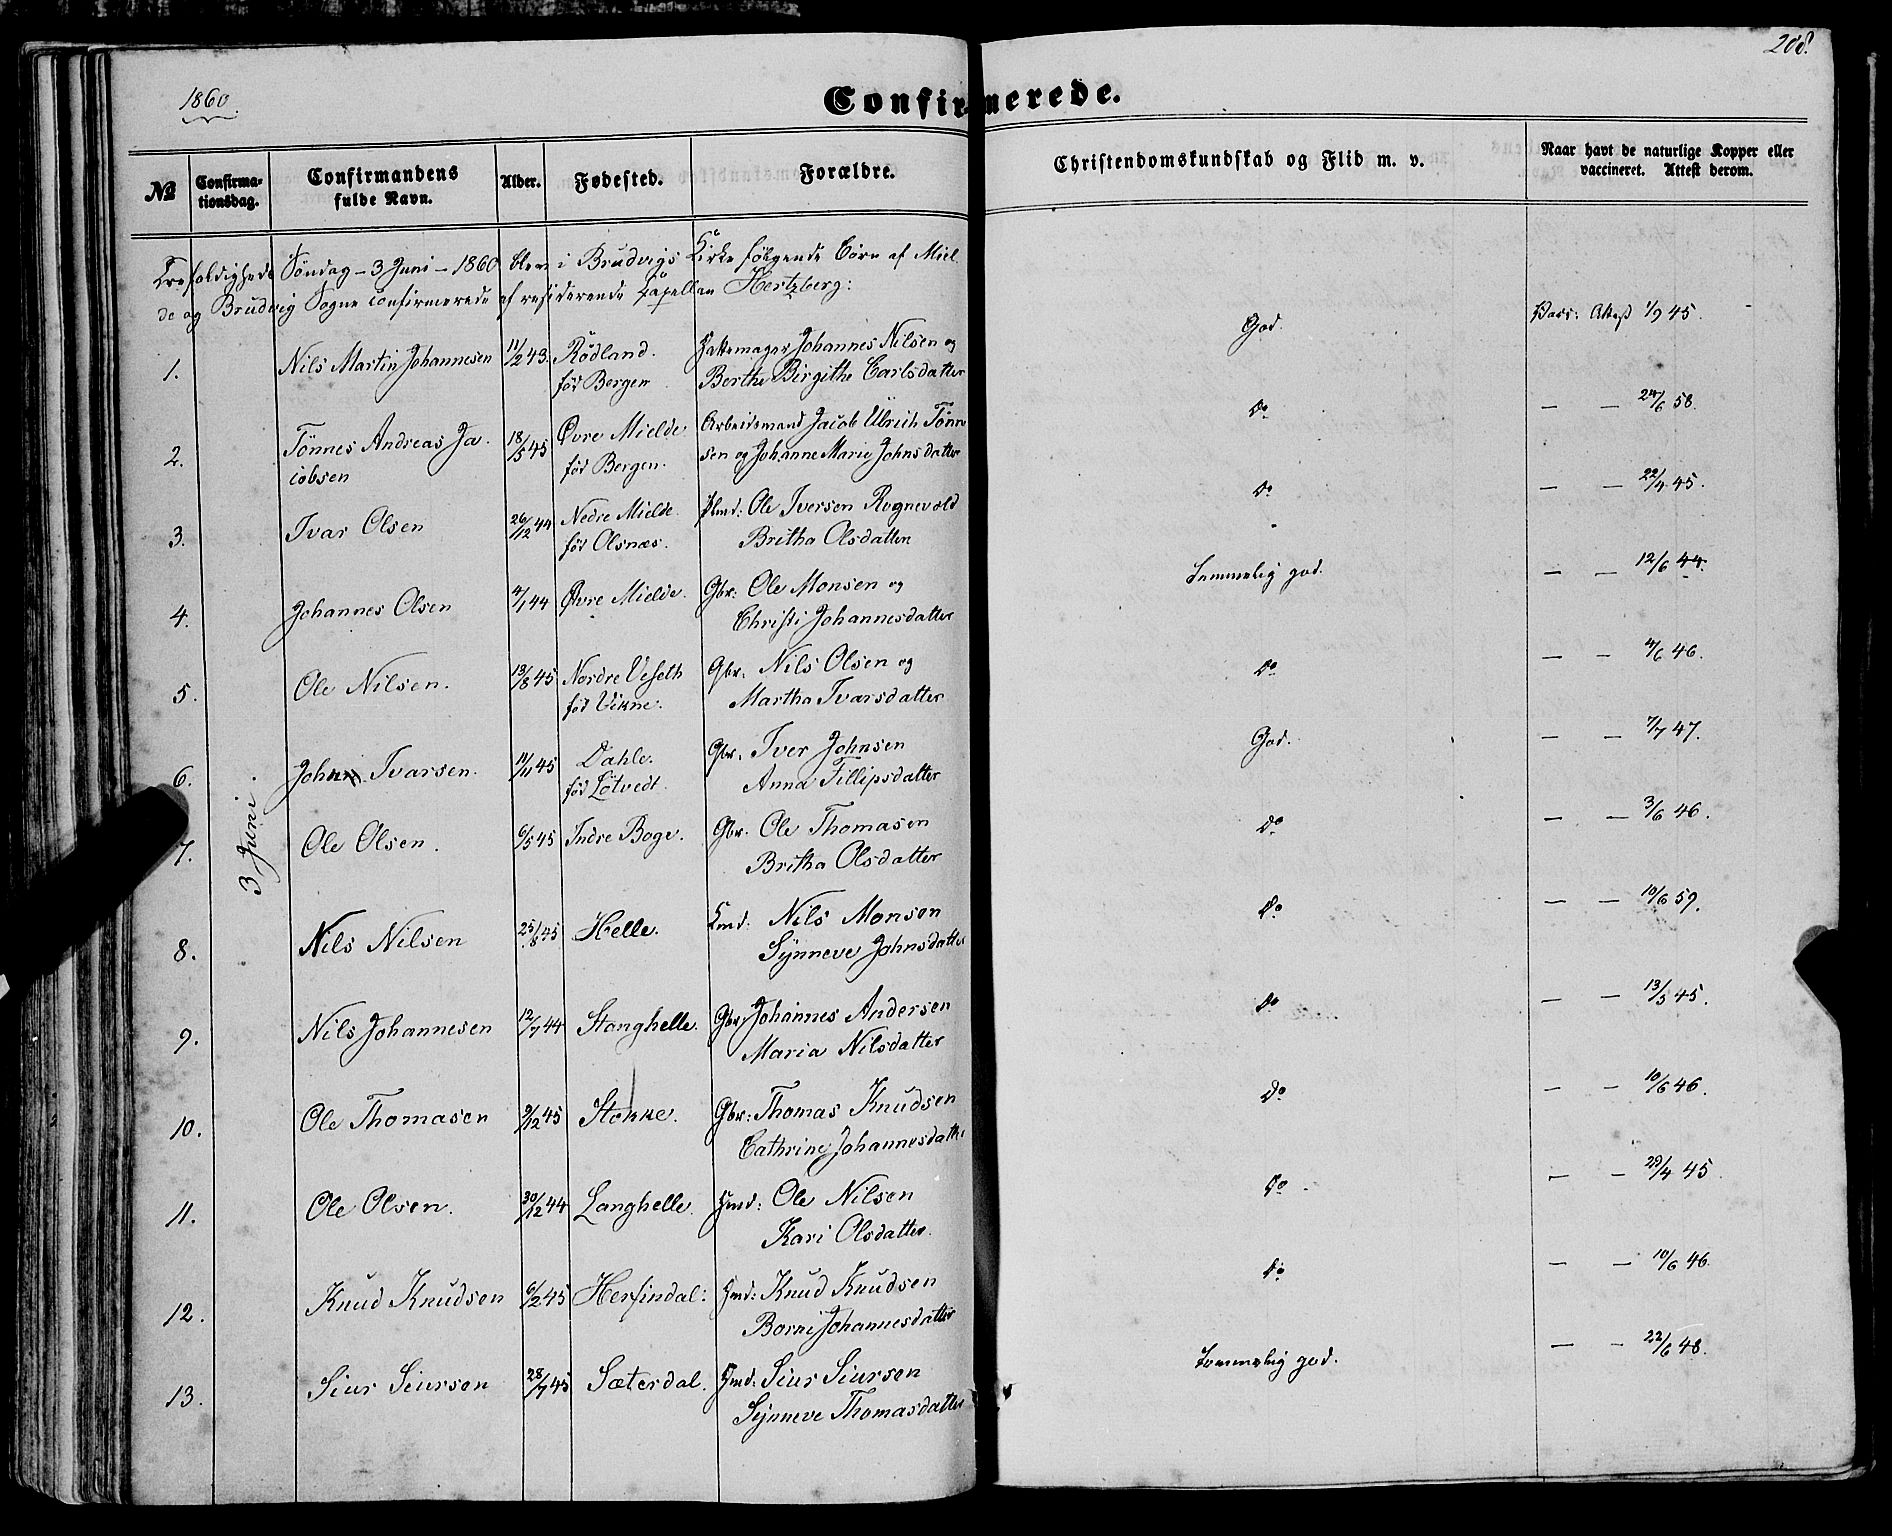 208.
1860.
Confirmerede.
№ Confirmationsdag. Confirmandens fulde Navn. Alder. Fødested. Forældre. Christendomskundskab og Flid m. v. Naar havt de naturlige Kopper eller vaccineret. Attest derom.
Trefoldigheds Söndag – 3 Juni – 1860 blev i Brudvigs Kirke følgende Børn af Miel
de og Brudvig Sogne confirmerede af residerende Capellan Hertzberg:
3 Juni.
1. Nils Martin Johannesen 11/2 43. Rødland. Hattemager Johannes Nilsen og God. Vacc: Attest 1/9 45.
før Bergen Berthe Birgithe Carlsdatter
2. Tönnes Andreas Ja 18/5 45 Øvre Mielde Arbeidsmand Jacob Ulrich Tönne Do — — 24/6 58.
cobsen før Bergen. sen og Johanne Marie Johnsdatter
3. Ivar Olsen 26/12 44 Nedre Mielde. Ole Iversen Rognevold Do — — 22/4 45.
før Olsnæs. Britha Olsdatter
4. Johannes Olsen 4/1 44 Øvre Mielde. Gbr: Ole Monsen og Temmelig god. — — 12/6 44.
Christi Johannesdatter
5. Ole Nilsen. 13/8 45 Nordre Veseth Gbr. Nils Olsen og Do — — 4/6 46.
før Vikne. Martha Ivarsdatter
6. John Ivarsen. 14/11 45 Dahle. Gbr. Iver Johnsen God. — — 7/7 47.
før Lötvedt. Anna Fillipsdatter
7. Ole Olsen. 6/5 45 Indre Boge. Gbr. Ole Thomasen Do — — 3/6 46.
Britha Olsdatter
8. Nils Nilsen 25/8 45 Helle. Hmd: Nils Monsen Do — — 10/6 59.
Synneve Johnsdatter
9. Nils Johannesen 12/7 44 Stanghelle. Gbr. Johannes Andersen Do — — 13/5 45.
Maria Nilsdatter
10. Ole Thomasen 9/12 45 Stokke. Gbr: Thomas Knudsen Do — — 10/6 46.
Cathrine Johannesdatter
11. Ole Olsen. 30/12 44 Langhelle. Hmd: Ole Nilsen Do — — 29/4 45
Kari Olsdatter.
12. Knud Knudsen 6/2 45 Herfindal: Hmd: Knud Knudsen Do — — 10/6 46.
Borni Johannesdatter
13. Siur Siursen 28/7 45 Sæterdal. Hmd: Siur Siursen Temmelig god. — — 22/6 48.
Synneve Thomasdatter